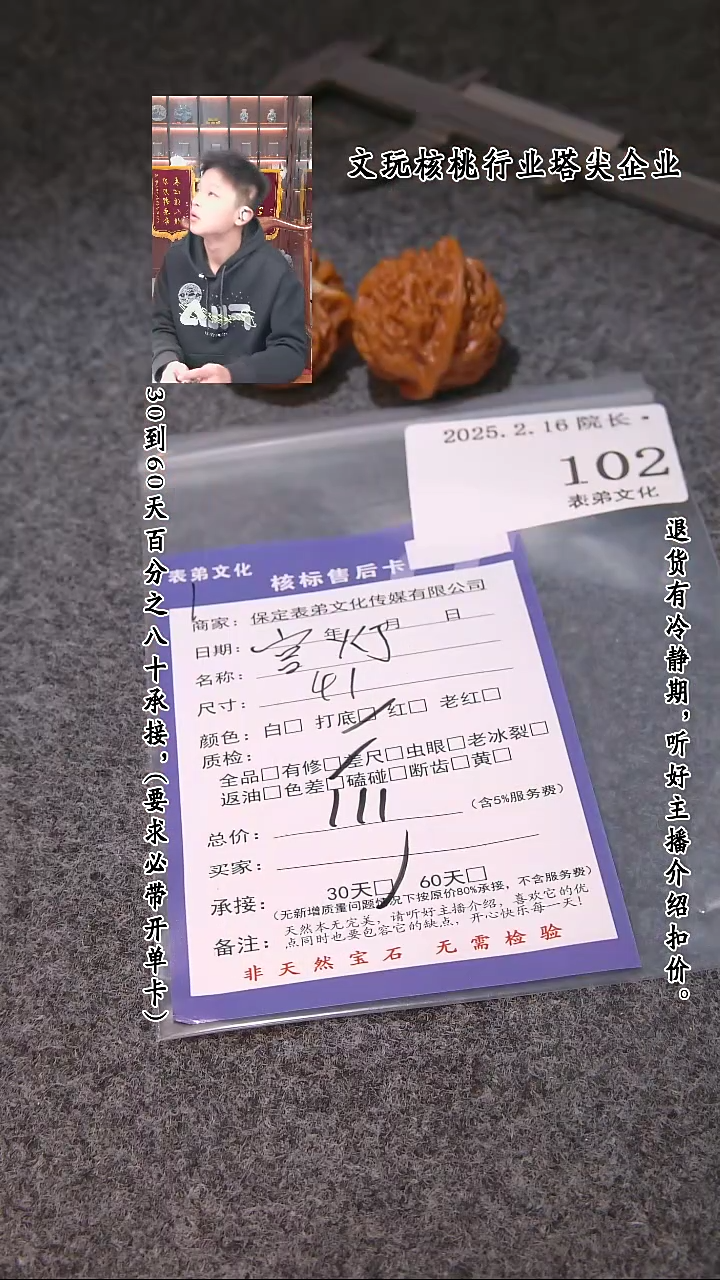 文玩核桃行业塔尖企业
30到60天百分之八十承接，（要求必带开单卡）
退货有冷静期，听好主播介绍扣价。
2025.2.16院长
102
表弟文化
表弟文化 核标售后卡
商家：保定表弟文化传媒有限公司
日期： 年 月 日
名称：宫灯
尺寸：41
颜色：白□ 打底□ 红□ 老红□
质检：
全品□有修□差尺□虫眼□老冰裂□
返油□色差□磕碰□断齿□黄□
总价：111（含5%服务费）
买家：
承接：30天□ 60天□
（无新增质量问题情况下按原价80%承接，不含服务费）
备注：天然本无完美，请听好主播介绍，喜欢它的优
点同时也要包容它的缺点，开心快乐每一天！
非天然宝石 无需检验